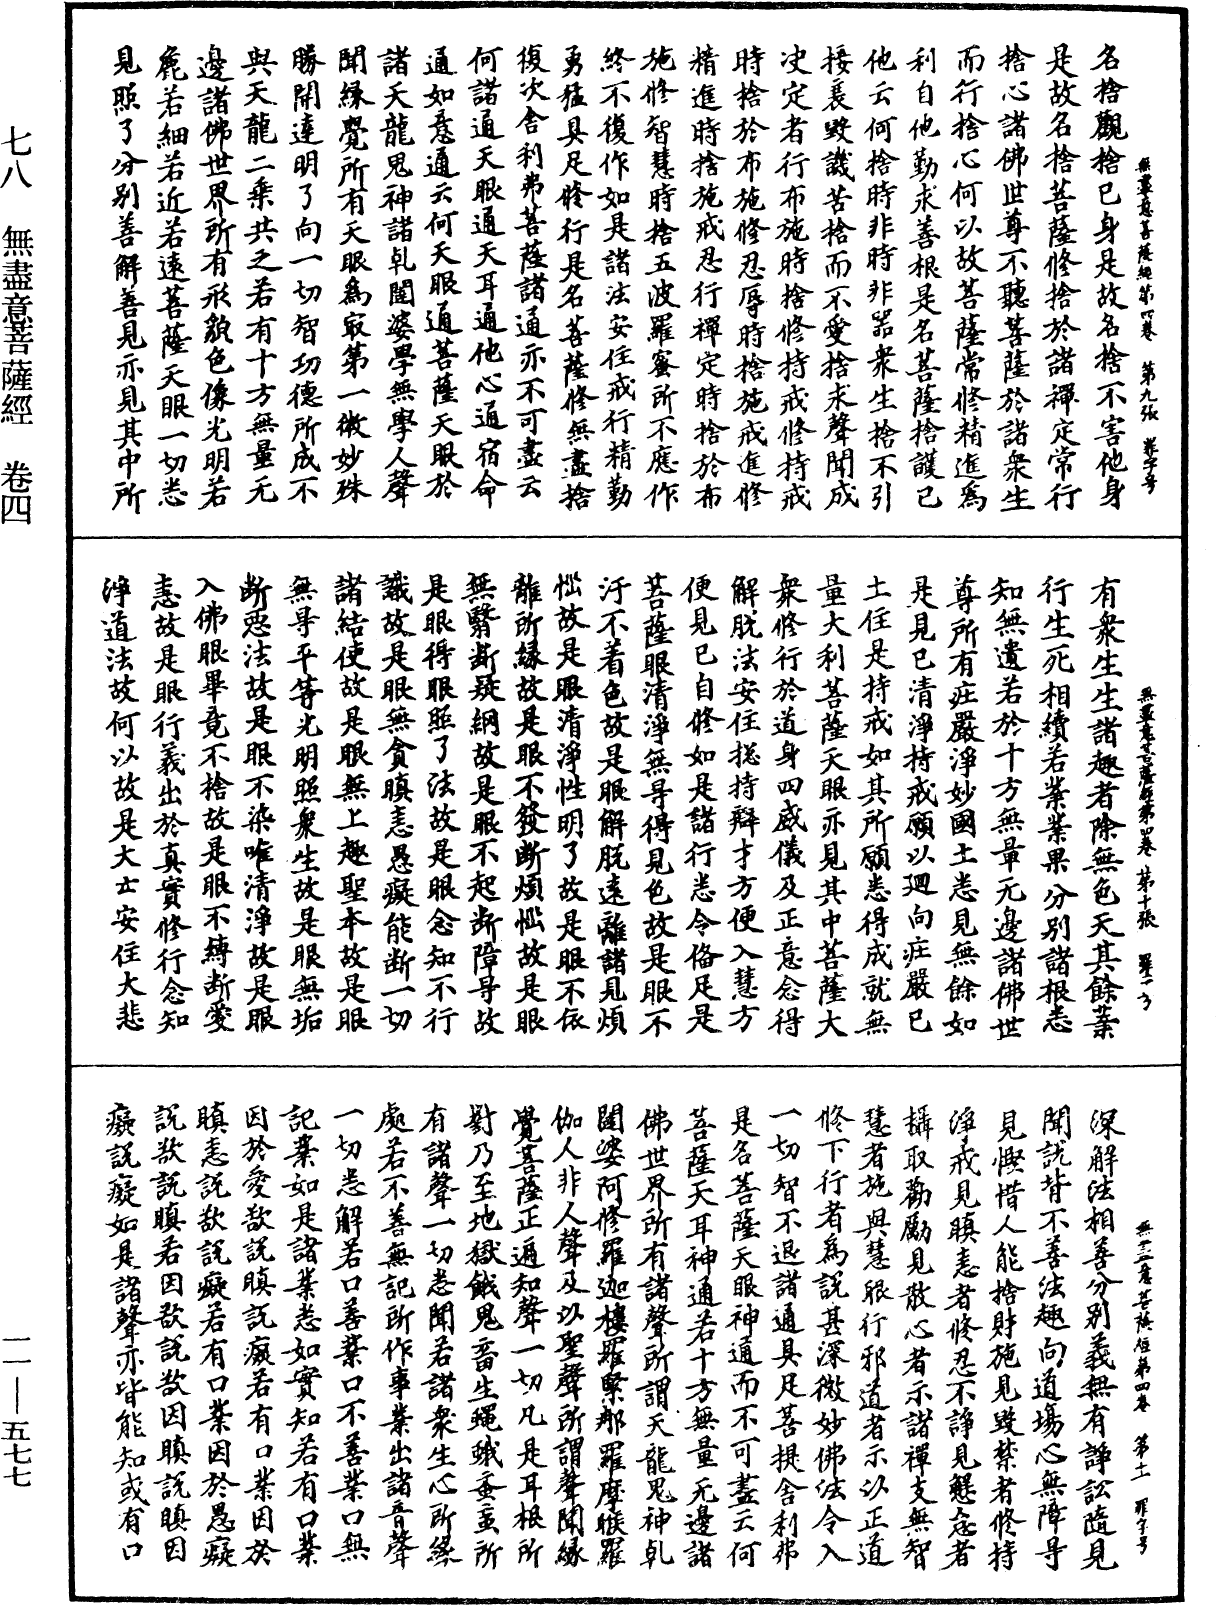 名捨觀捨已身是故名捨不害他身
是故名捨菩薩修捨於諸禪定常行
捨心諸佛世尊不聽菩薩於諸衆生
而行捨心何以故菩薩常修精進為
利自他勤求善根是名菩薩捨護已
他云何捨時非時非器衆生捨不引
接衰毀譏苦捨而不愛捨求聲聞成
决定者行布施時捨修持戒修持戒
時捨於布施修忍辱時捨施戒進修
精進時捨施戒忍行禪定時捨於布
施修智慧時捨五波羅蜜所不應作
終不復作如是諸法安住戒行精勤
勇猛具足修行是名菩薩修無盡捨
復次舍利弗菩薩諸通亦不可盡云
何諸通天眼通天耳通他心通宿命
通如意通云何天眼通菩薩天眼於
諸天龍鬼神諸乹闥婆學無學人聲
聞緣覺所有天眼為㝡第一微妙殊
勝開達明了向一切智功德所成不
與天龍二乗共之若有十方無量无
邊諸佛世界所有形貌色像光明若
麁若細若近若遠菩薩天眼一切悉
見照了分别善解善見亦見其中所
無盡意菩薩經第四卷 第九張
有衆生生諸趣者除無色天其餘業
行生死相續若業業果分别諸根悉
知無遺若於十方無量无邊諸佛世
尊所有莊嚴淨妙國土悉見無餘如
是見已清淨持戒願以廻向莊嚴已
土住是持戒如其所願悉得成就無
量大利菩薩天眼亦見其中菩薩大
衆修行於道身四威儀及正意念得
解脫法安住揔持辯才方便入慧方
便見已自修如是諸行悉令俻足是
菩薩眼清淨無㝵得見色故是眼不
汙不着色故是眼解脫遠離諸見煩
惱故是眼清淨性明了故是眼不依
離所緣故是眼不發斷煩惱故是眼
無翳斷疑網故是眼不起斷障㝵故
是眼得眼照了法故是眼念知不行
識故是眼無貪瞋恚愚癡能斷一切
諸結使故是眼無上趣聖本故是眼
無㝵平等光明照衆生故是眼無垢
斷惡法故是眼不染唯清淨故是眼
入佛眼畢竟不捨故是眼不縛斷愛
恚故是眼行義出於真實修行念知
淨道法故何以故是大士安住大悲
無盡意菩薩經第四卷 第十張
深解法相善分别義無有諍訟隨見
聞說背不善法趣向道場心無障㝵
見慳惜人能捨財施見毀禁者修持
淨戒見瞋恚者修忍不諍見懈怠者
攝取勸勵見散心者示諸禪支無智
慧者施與慧眼行邪道者示以正道
修下行者為說甚深微妙佛法令入
一切智不退諸通具足菩提舍利弗
是名菩薩天眼神通而不可盡云何
菩薩天耳神通若十方無量无邊諸
佛世界所有諸聲所謂天龍鬼神乹
闥婆阿修羅迦樓羅緊那羅摩睺羅
伽人非人聲及以聖聲所謂聲聞緣
覺菩薩正遍知聲一切凡是耳根所
對乃至地獄餓鬼畜生蠅蛾蚤䖟所
有諸聲一切悉聞若諸衆生心所緣
處若不善無記所作事業出諸音聲
一切悉解若口善業口不善業口無
記業如是諸業悉如實知若有口業
因於愛欲說瞋說癡若有口業因於
瞋恚說欲說癡若有口業因於愚癡
說欲說瞋若因欲說欲因瞋說瞋因
癡說癡如是諸聲亦皆能知或有口
無盡意菩薩經第四卷 第十一
七八 無盡意菩薩經 卷四
一一—五七七